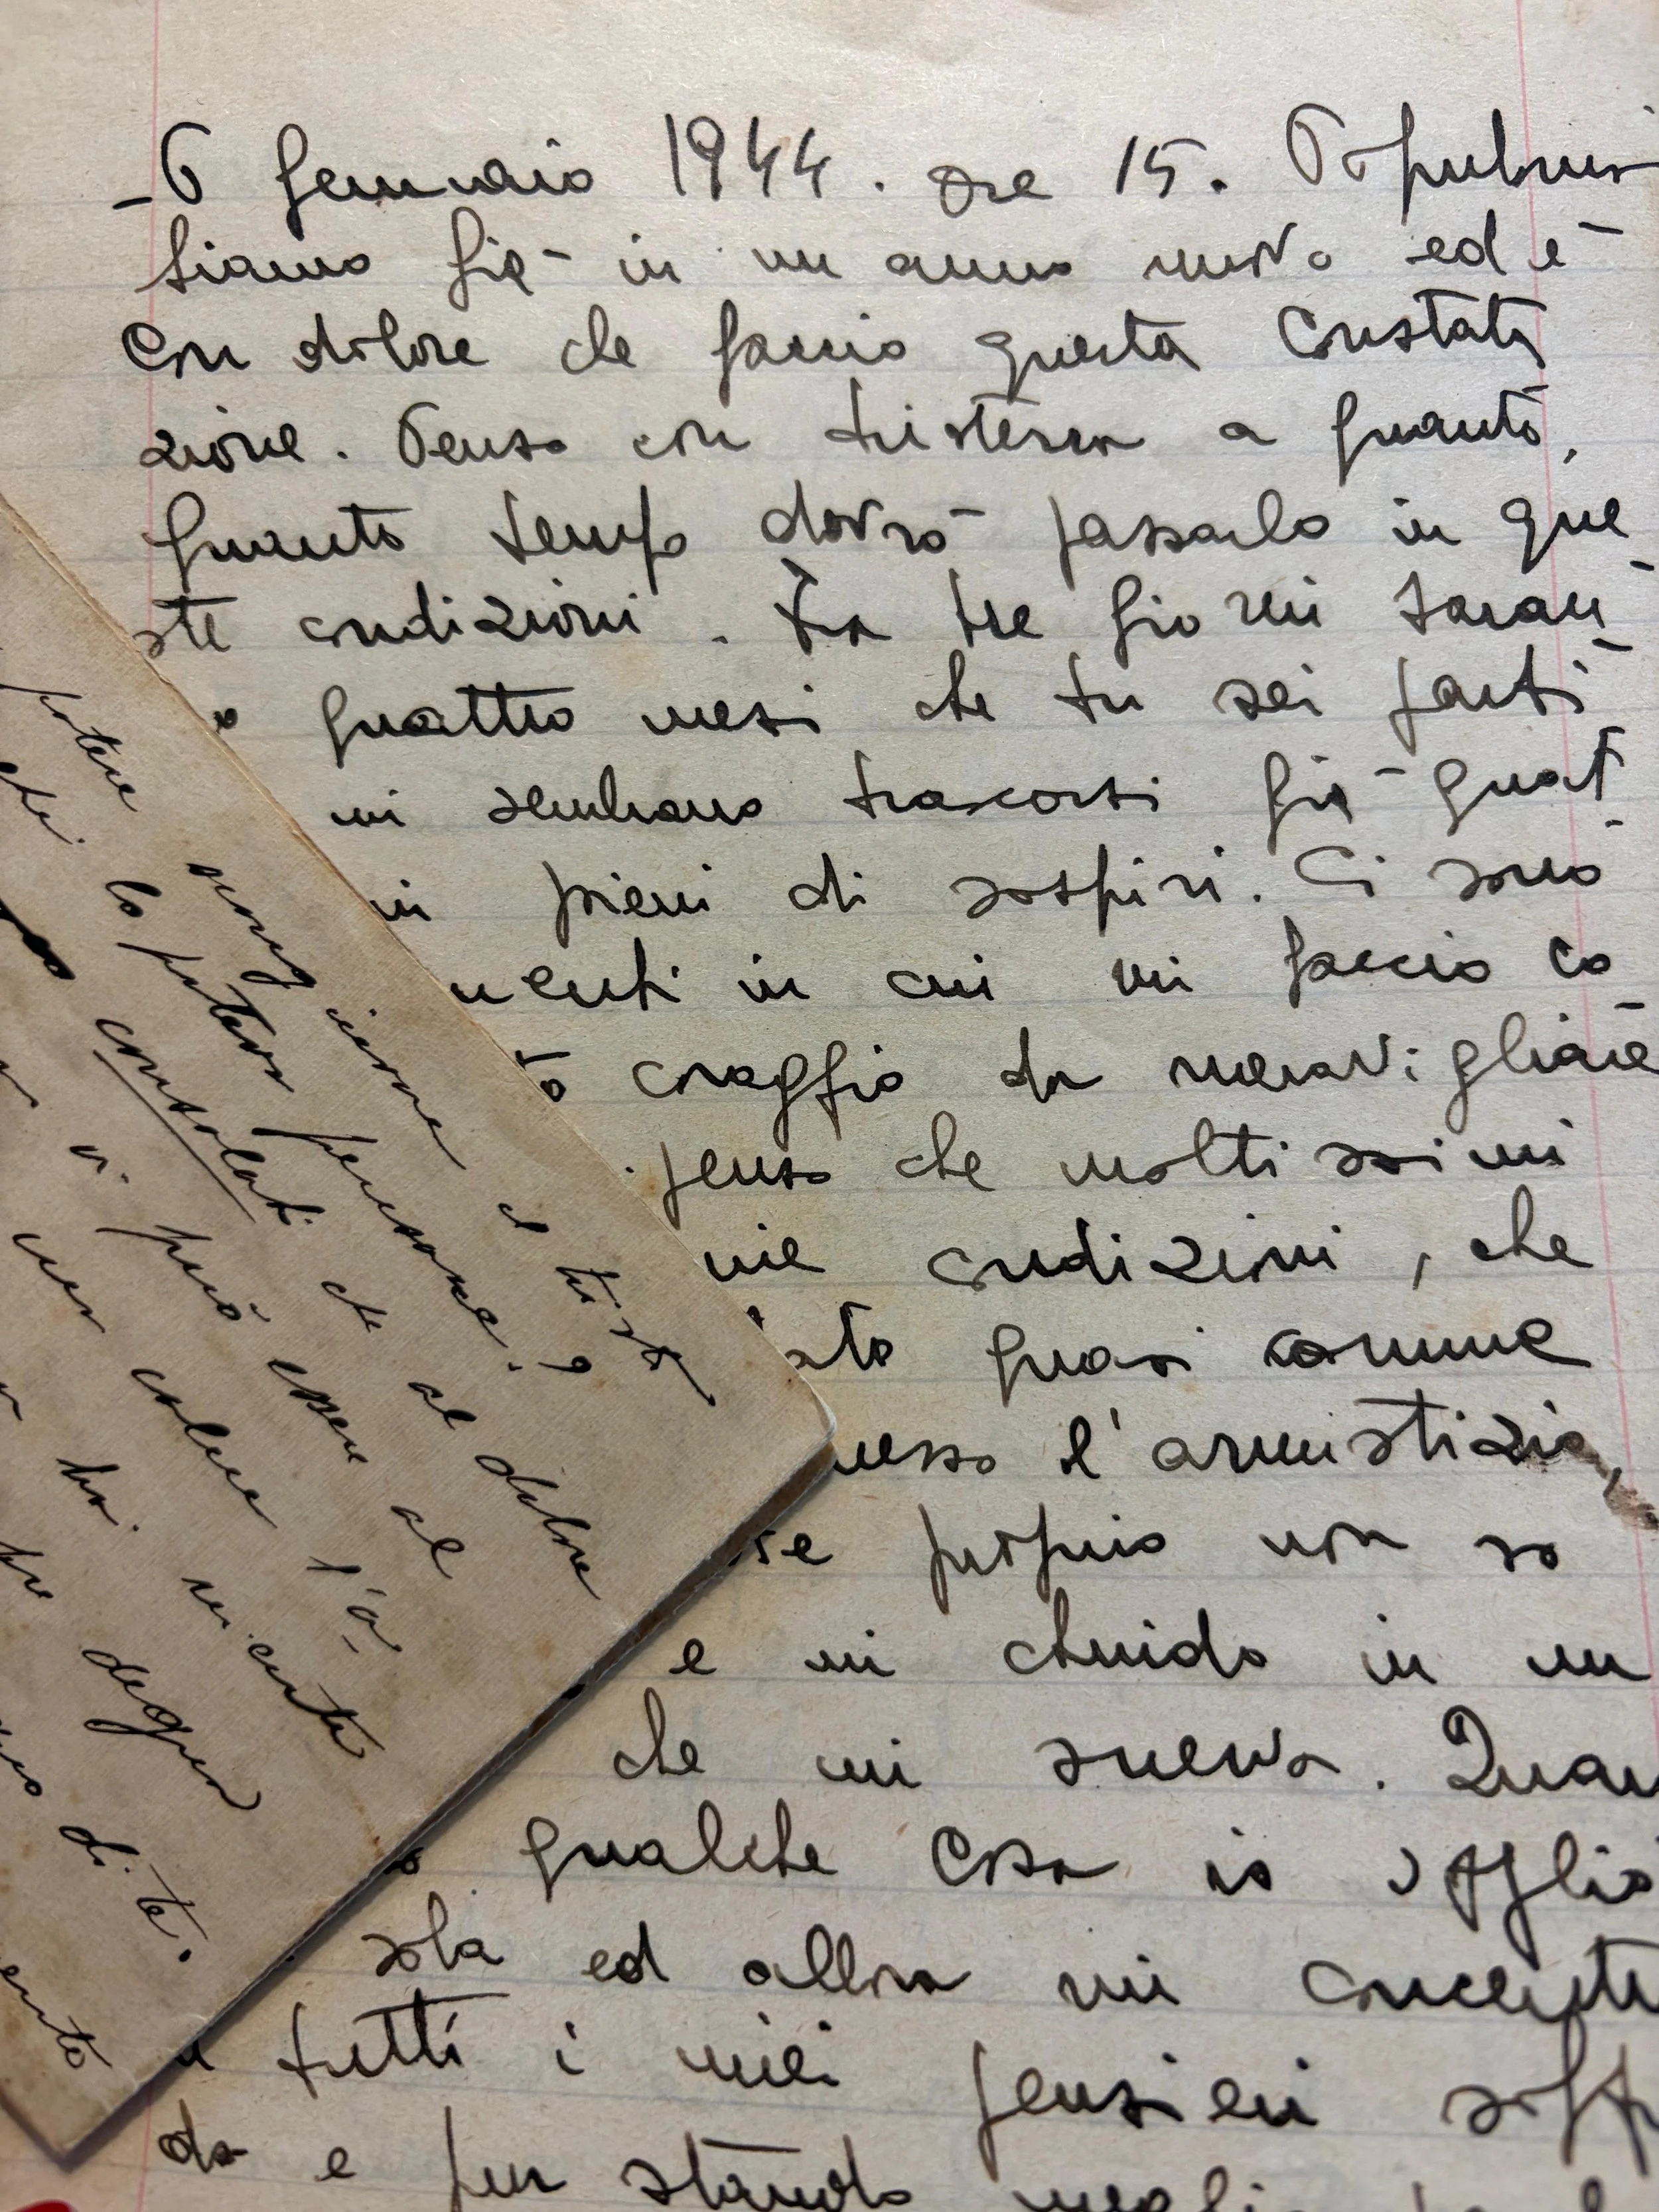 - 6 Gennaio 1944. Ore 15.
Siamo già in un anno nuovo ed è
con dolore che faccio questa constata
zione. Penso con tristezza a quanto,
quanto tempo dovrò passarlo in que
ste condizioni. Fra tre giorni saran
o quattro mesi che tu sei parti
mi sembrano trascorsi già quat
ni pieni di sospiri. Ci sono
menti in cui mi faccio co
to coraggio da meravigliare
penso che moltissimi
mie condizioni, che
ato quasi comune
messo l'armistizio,
re proprio non so
e mi chiudo in un
che mi snerva. Quan
o qualche cosa io voglio
sola ed allora mi concentr
tutti i miei pensieri soff
do e pur stando
potere e ti sto
chi lo poteva pensare?
consolati che al dolore
vi può essere al
calere l'a
hai mente
degen
di te.
ento